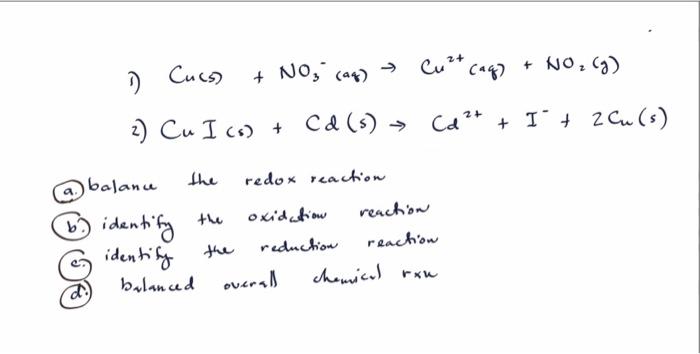 1) Cu(s) + NO₃⁻ (aq) → Cu²⁺ (aq) + NO₂ (g)
2) CuI (s) + Cd (s) → Cd²⁺ + I⁻ + 2Cu (s)
a. balance the redox reaction
b. identify the oxidation reaction
c. identify the reduction reaction
d. balanced overall chemical rxn